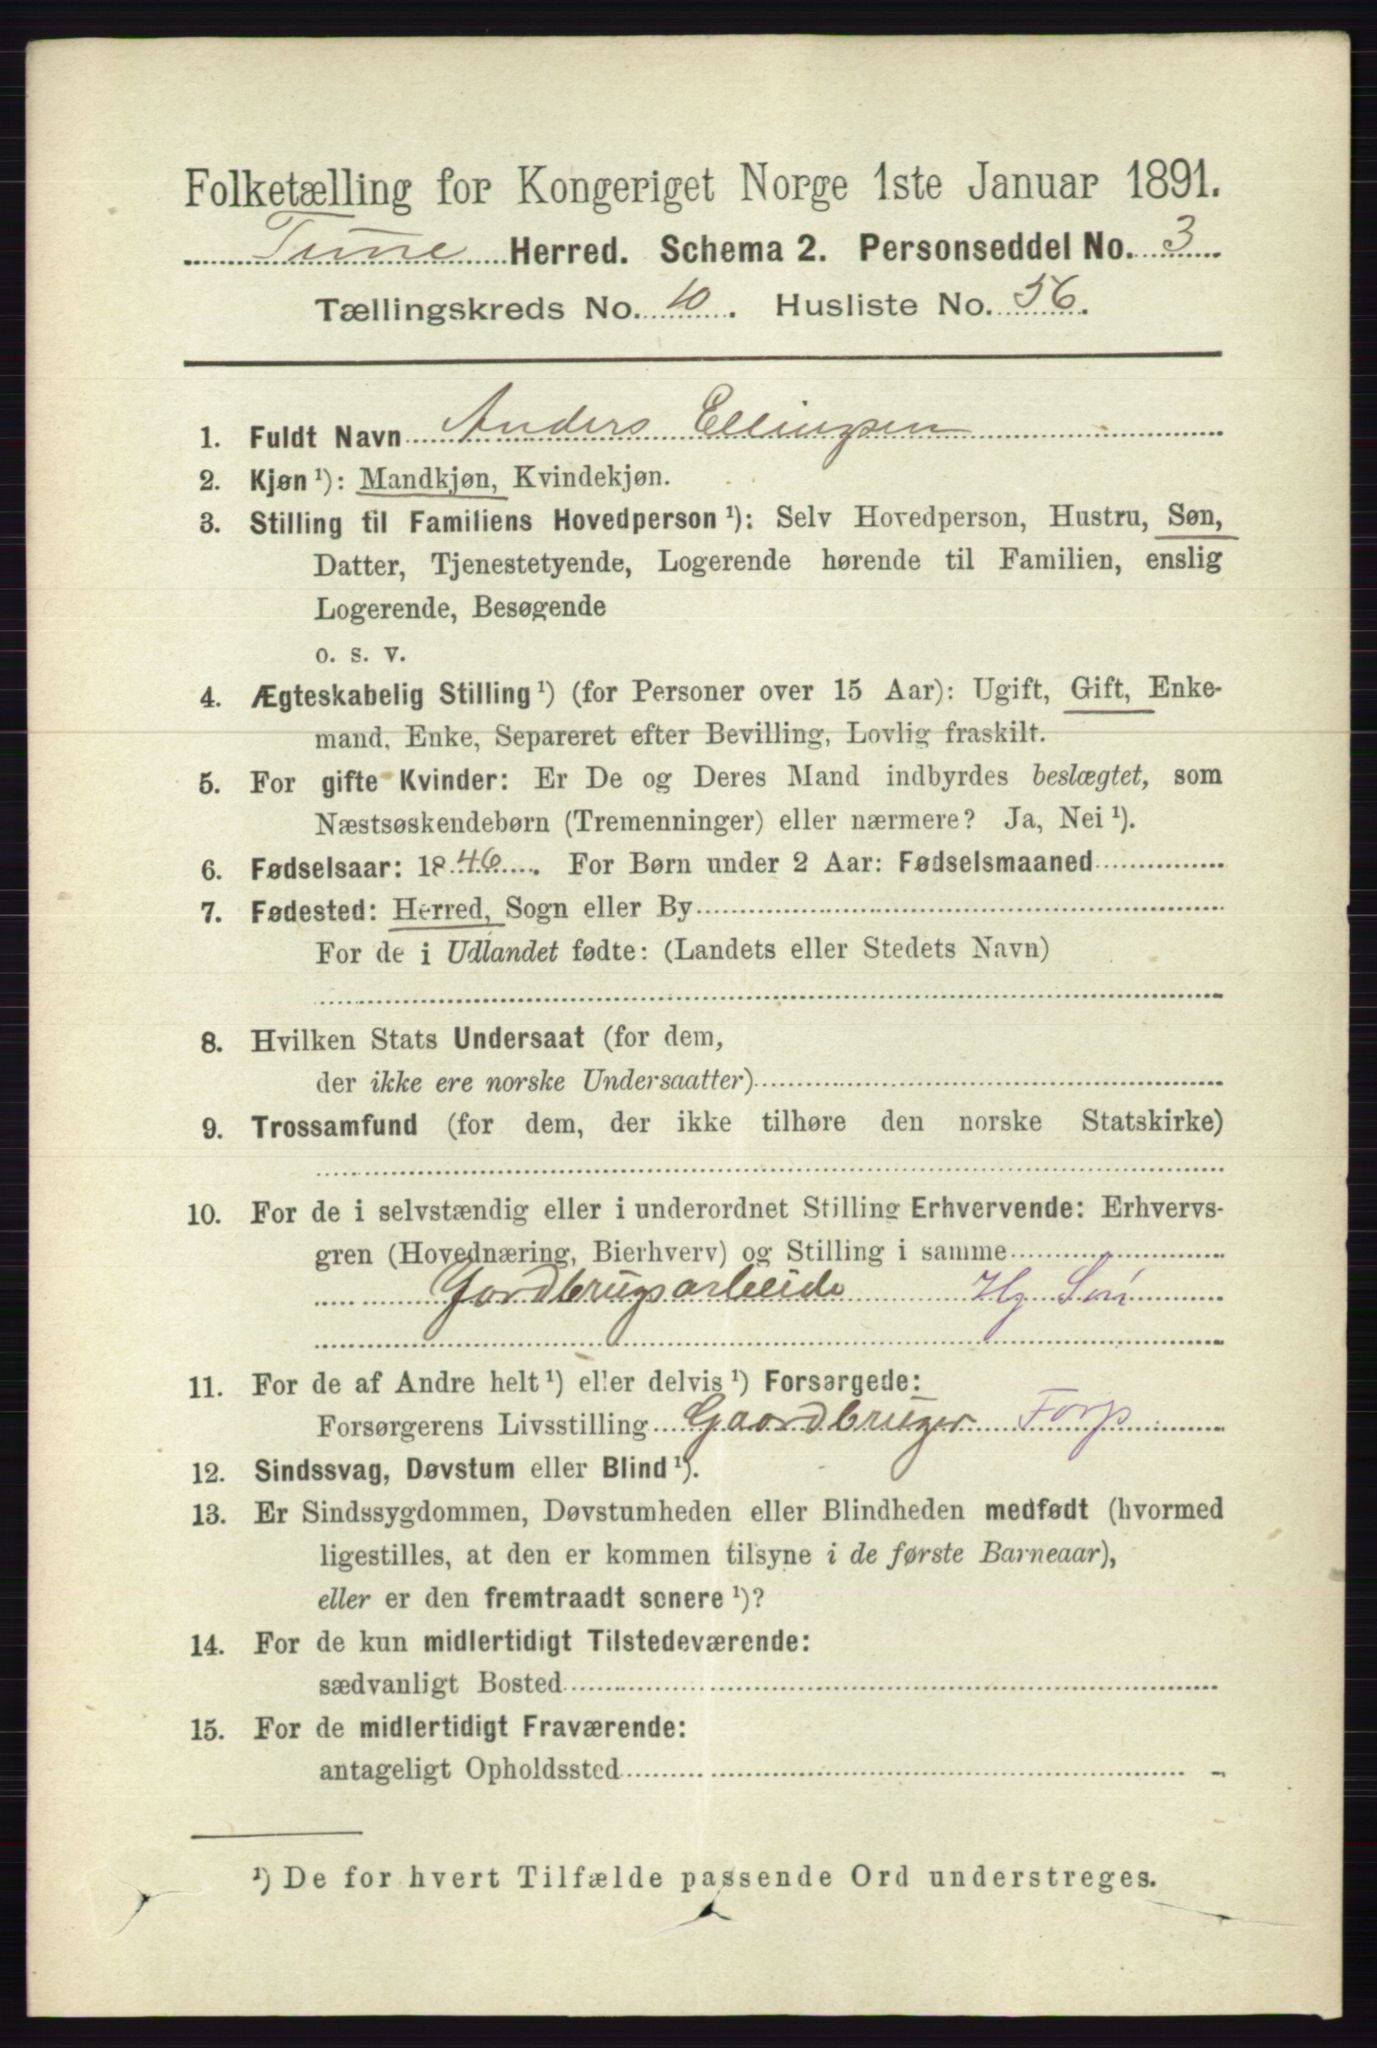 Folketælling for Kongeriget Norge 1ste Januar 1891.
Tune Herred. Schema 2. Personseddel No. 3
Tællingskreds No. 10. Husliste No. 56.
1. Fuldt Navn Anders Ellingsen
2. Kjøn ¹): Mandkjøn, Kvindekjøn.
3. Stilling til Familiens Hovedperson ¹): Selv Hovedperson, Hustru, Søn,
Datter, Tjenestetyende, Logerende hørende til Familien, enslig
Logerende, Besøgende
o. s. v.
4. Ægteskabelig Stilling ¹) (for Personer over 15 Aar): Ugift, Gift, Enke-
mand, Enke, Separeret efter Bevilling, Lovlig fraskilt.
5. For gifte Kvinder: Er De og Deres Mand indbyrdes beslægtet, som
Næstsøskendebørn (Tremenninger) eller nærmere? Ja, Nei ¹).
6. Fødselsaar: 1846. For Børn under 2 Aar: Fødselsmaaned
7. Fødested: Herred, Sogn eller By
For de i Udlandet fødte: (Landets eller Stedets Navn)
8. Hvilken Stats Undersaat (for dem,
der ikke ere norske Undersaatter)
9. Trossamfund (for dem, der ikke tilhøre den norske Statskirke)
10. For de i selvstændig eller i underordnet Stilling Erhvervende: Erhvervs-
gren (Hovednæring, Bierhverv) og Stilling i samme
Jordbrugsarbeide Hg Søn
11. For de af Andre helt ¹) eller delvis ¹) Forsørgede:
Forsørgerens Livsstilling Gaardbruger Forp
12. Sindssvag, Døvstum eller Blind ¹).
13. Er Sindssygdommen, Døvstumheden eller Blindheden medfødt (hvormed
ligestilles, at den er kommen tilsyne i de første Barneaar),
eller er den fremtraadt senere ¹)?
14. For de kun midlertidigt Tilstedeværende:
sædvanligt Bosted
15. For de midlertidigt Fraværende:
antageligt Opholdssted
¹) De for hvert Tilfælde passende Ord understreges.